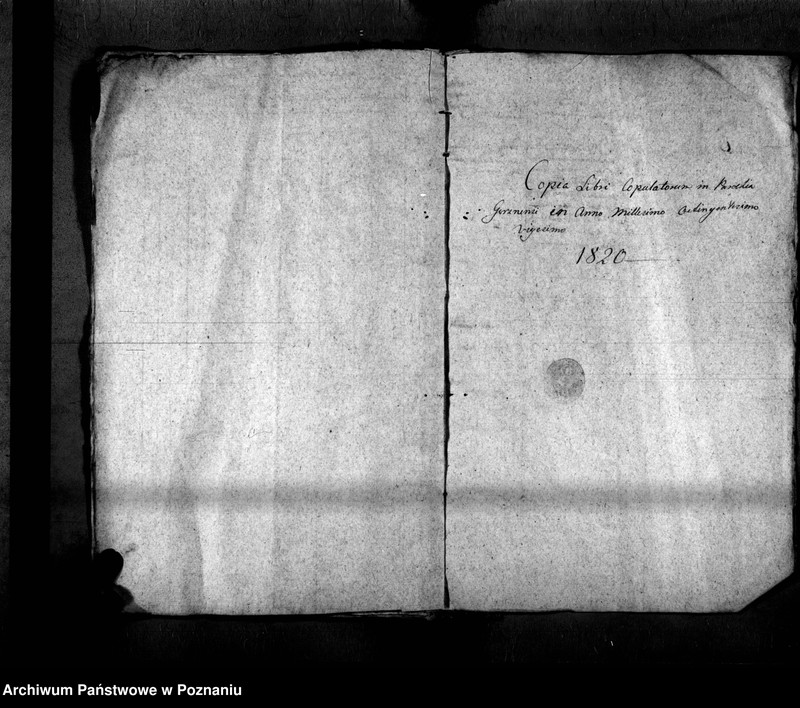 Copia Libri Copulatorum in Parochia
in Anno Millesimo Octingentesimo
Vigesimo
1820
Archiwum Państwowe w Poznaniu